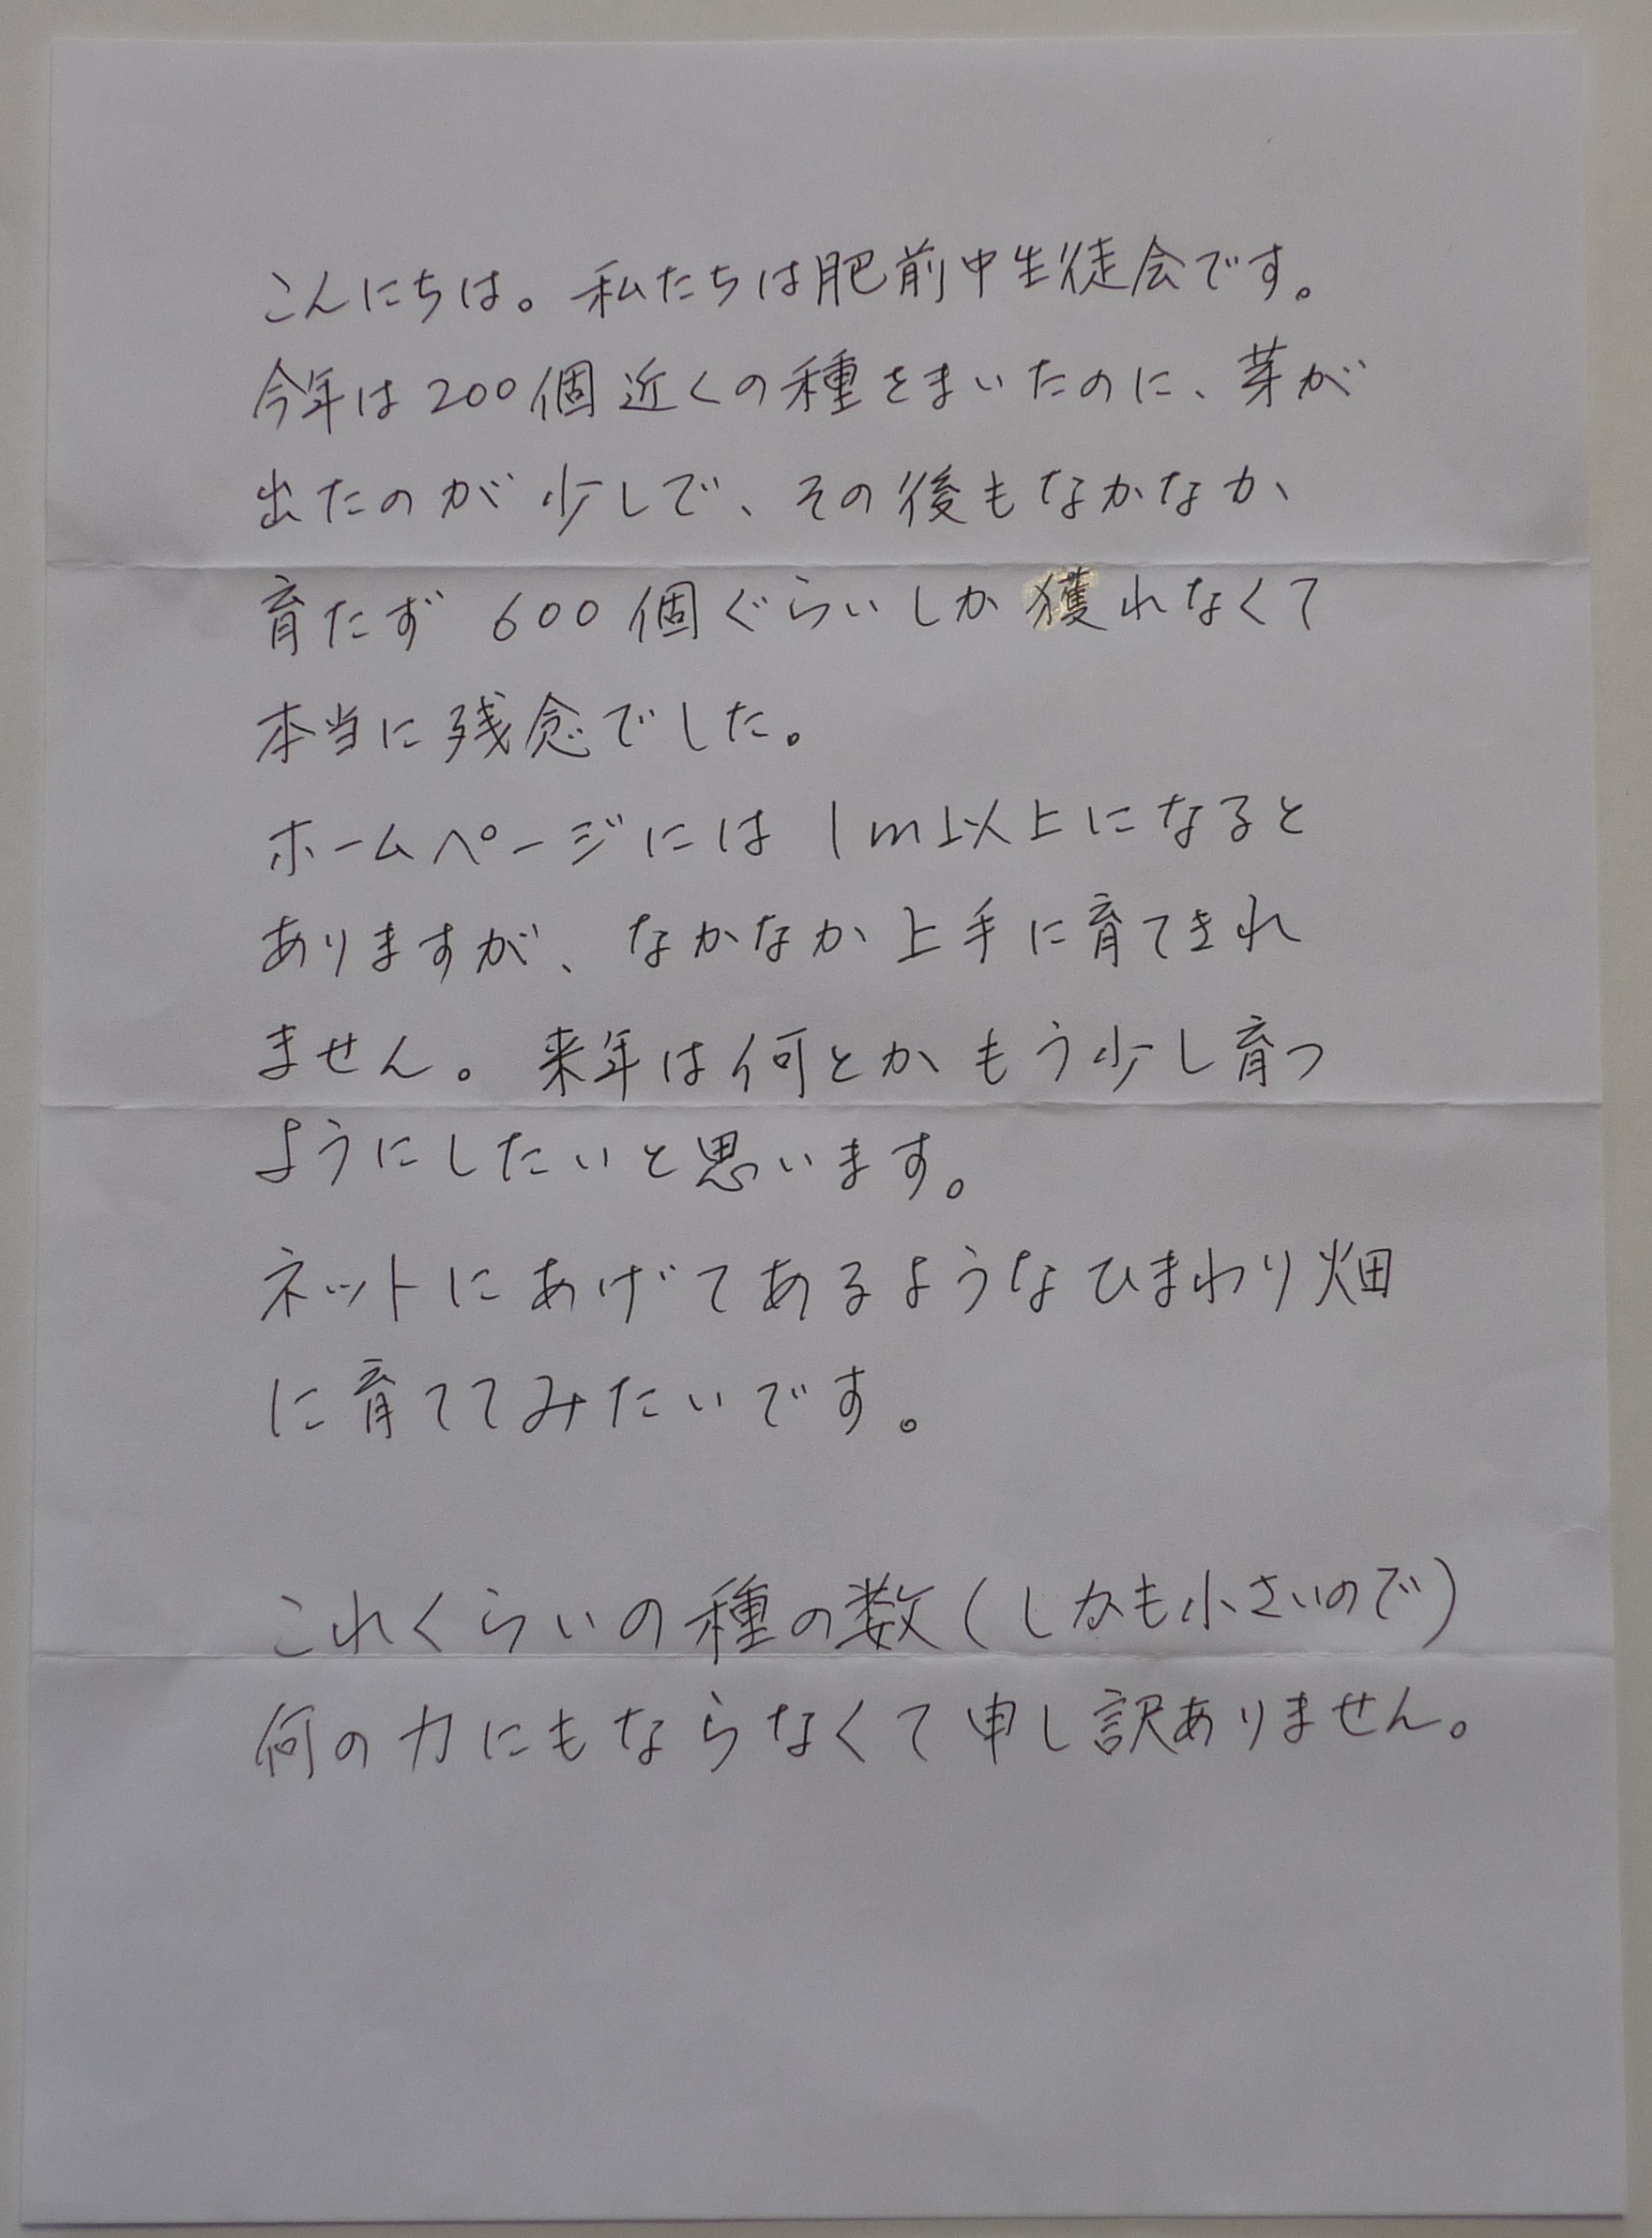 こんにちは。私たちは肥前中生徒会です。
今年は200個近くの種をまいたのに、芽が
出たのが少しで、その後もなかなか
育たず 600個ぐらいしか獲れなくて
本当に残念でした。
ホームページには1m以上になると
ありますが、なかなか上手に育てきれ
ません。来年は何とかもう少し育つ
ようにしたいと思います。
ネットにあげてあるようなひまわり畑
に育ててみたいです。
これくらいの種の数(しかも小さいので)
何の力にもならなくて申し訳ありません。